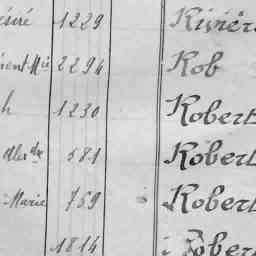 ésiré 1229 Rivièr
ent-Mie 2294 Rob
h 1230 Robert
Alexdre 581 Robert
-Marie 759 Robert
1814 Robert